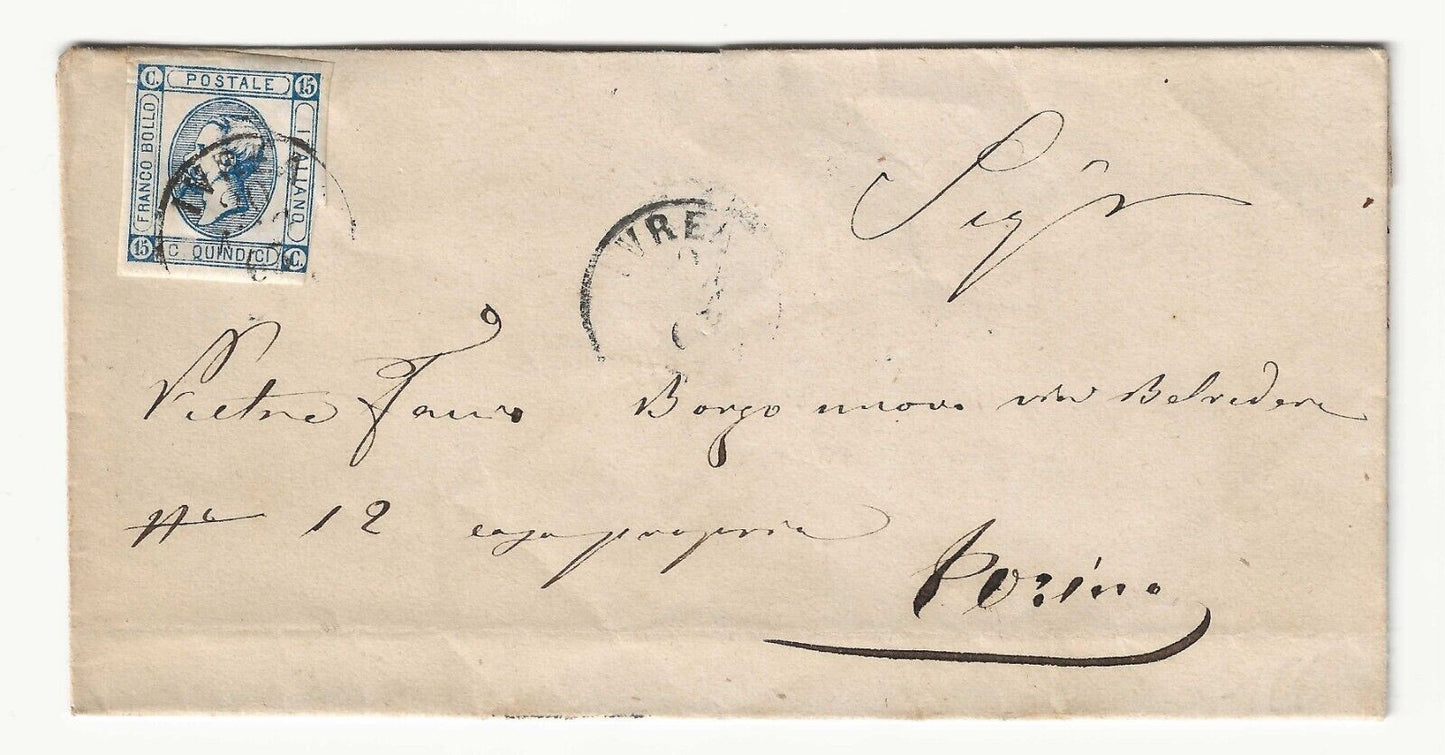 C. POSTALE 15
FRANCO BOLLO
ITALIANO
15 C. QUINDICI C.
IVREA
IVREA
Sigr
Borgo nuovo via Belvedere
No 12 casa propria
Torino